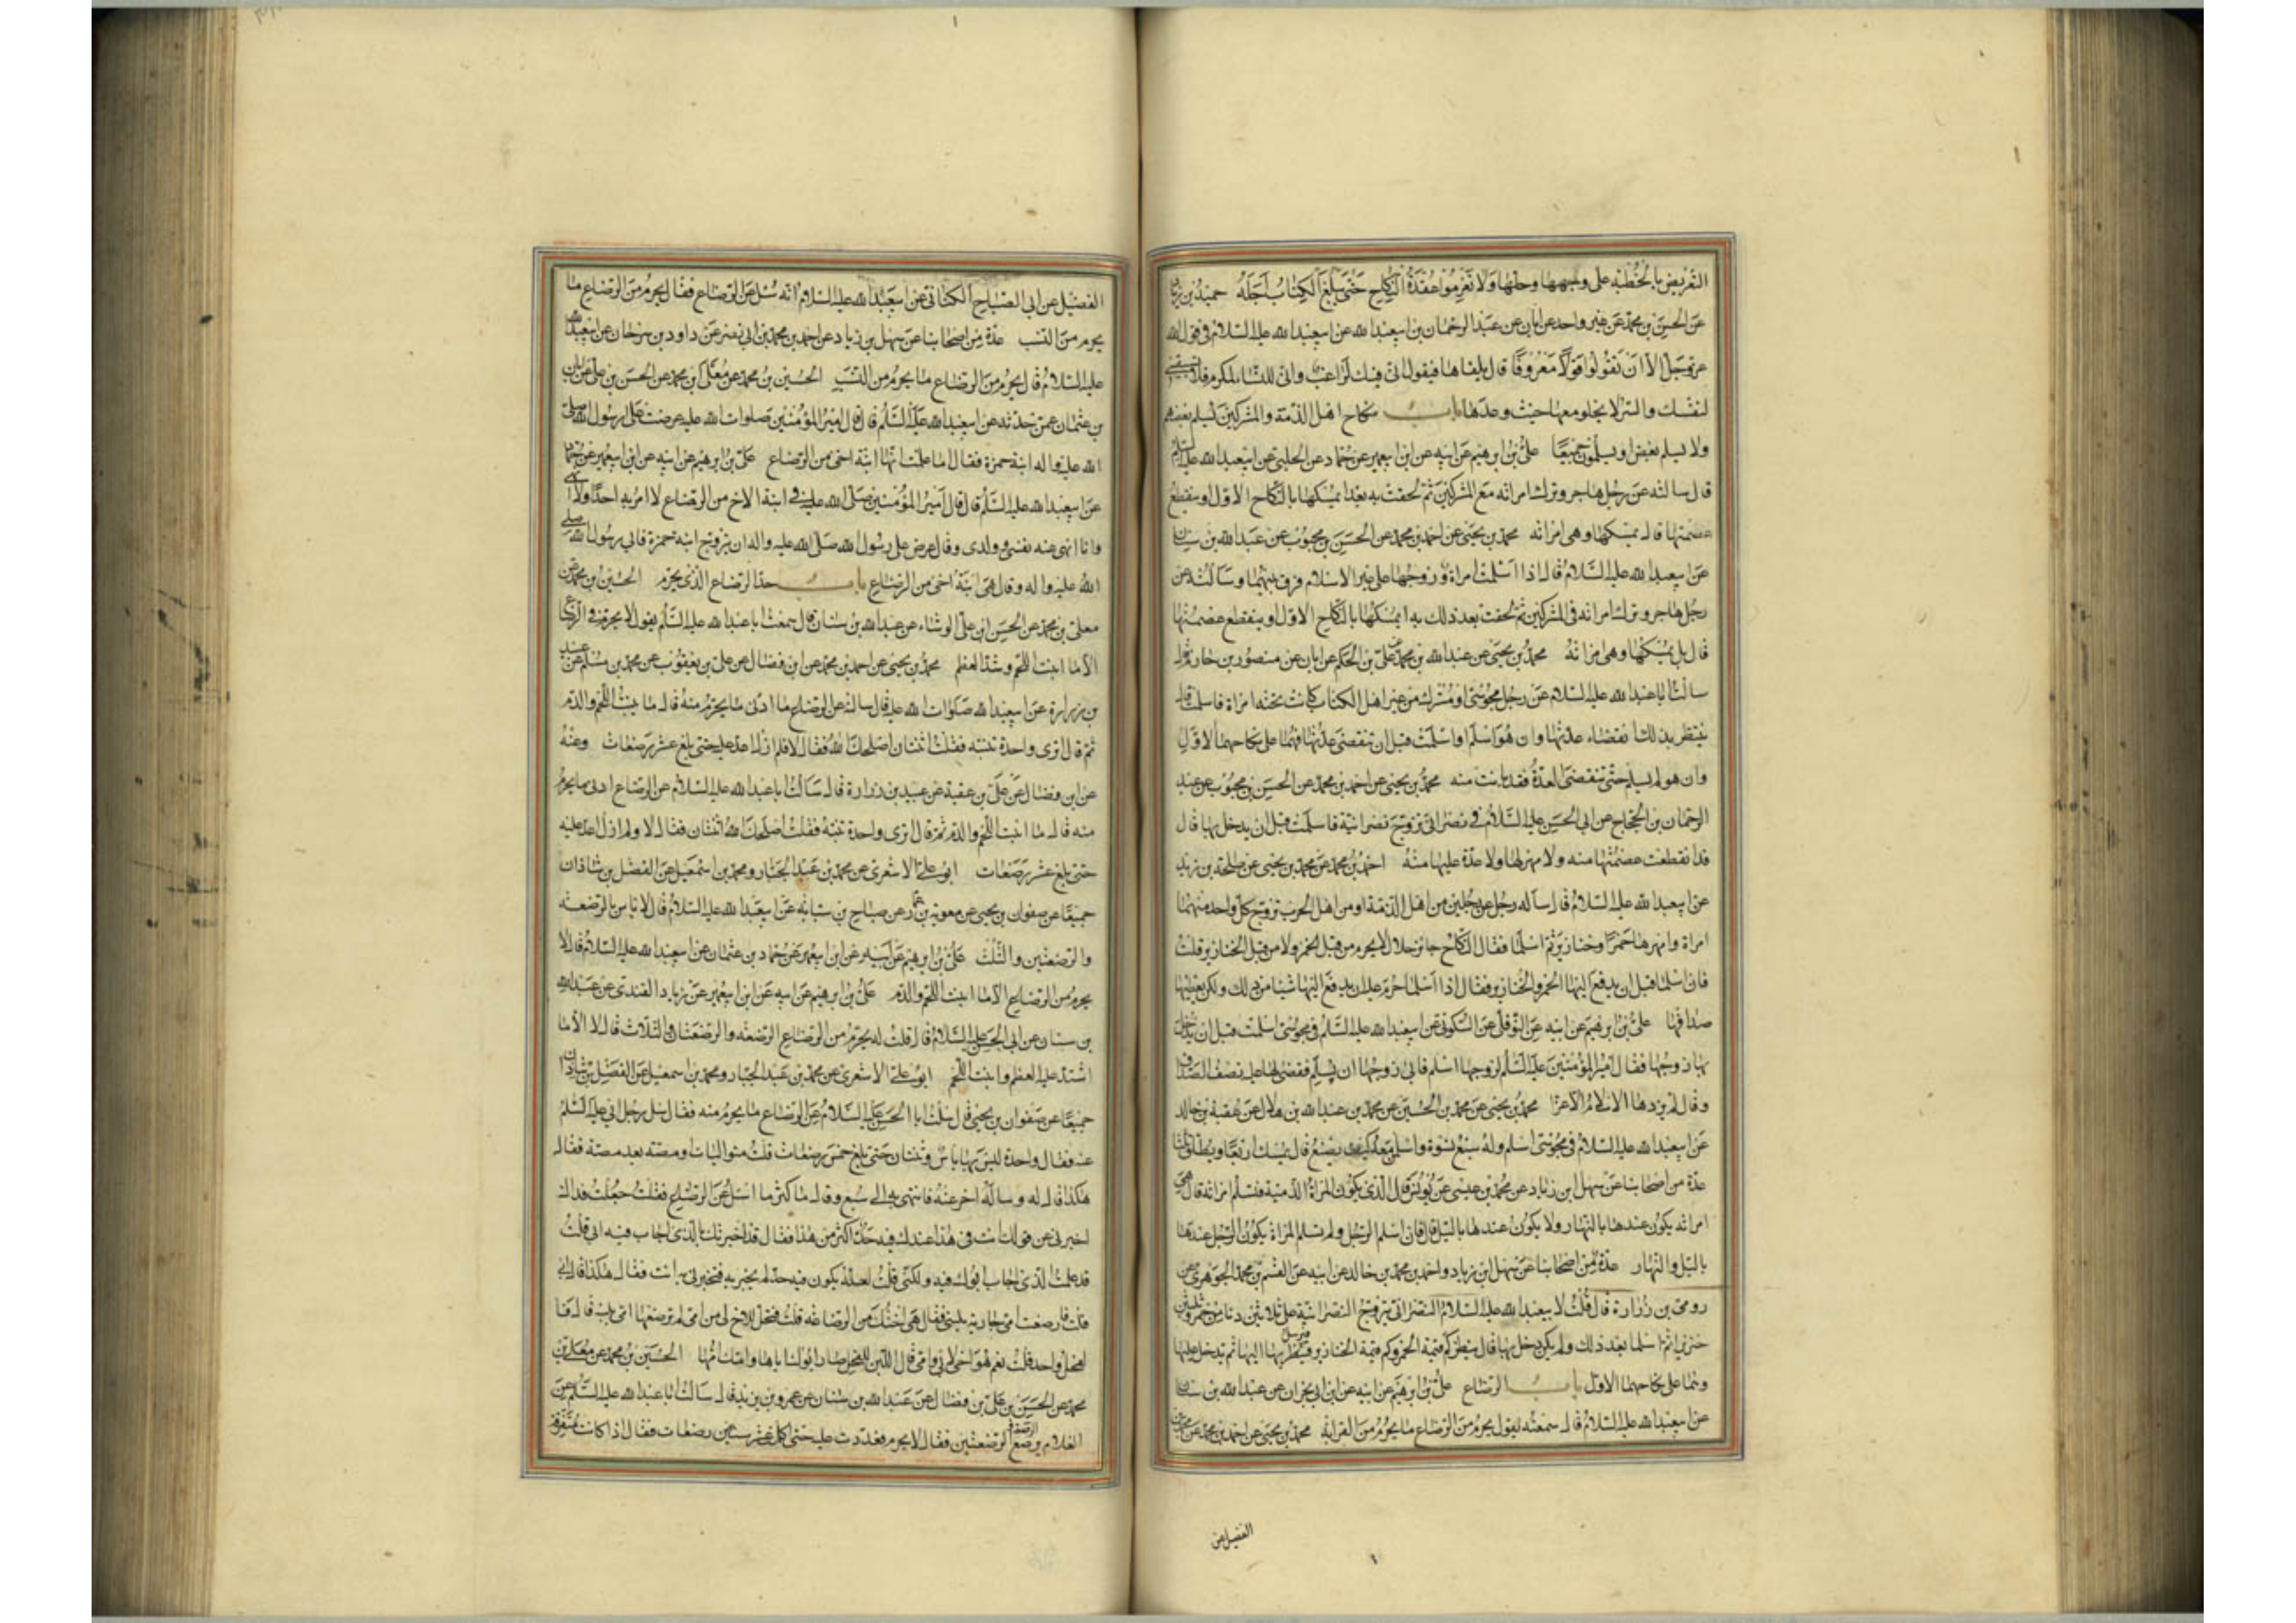 التعريض بالخطبة على وجهها وحلها ولا تعزموا عقدة النكاح حتى يبلغ الكتاب اجله حميد بن زياد
عن الحسن بن محمد عن غير واحد عن ابان عن عبد الرحمان بن ابيعبدالله عن ابيعبدالله عليه السلام في قول الله
عزوجل الا ان تقولوا قولا معروفا قال يلقاها فيقول اني فيك لراغب واني للنساء لمكرم فلا تسبقيني
لنفسك والسر لا يخلو معها حيث وعدها باب نكاح اهل الذمة والمشركين يسلم بعضهم
ولا يسلم بعض او يسلمون جميعا علي بن ابرهيم عن ابيه عن ابن ابيعمير عن حماد عن الحلبي عن ابيعبدالله عليه السلام
قال سالته عن رجل هاجر وترك امراته مع المشركين ثم لحقت به بعد ايمسكها بالنكاح الاول او ينقطع
عصمتها قال يمسكها وهي امراته محمد بن يحيى عن احمد بن محمد عن الحسن بن محبوب عن عبدالله بن سنان
عن ابيعبدالله عليه السلام قال اذا اسلمت امراة وزوجها على غير الاسلام فرق بينهما وسالته عن
رجل هاجر وترك امراته في المشركين ثم لحقت بعد ذلك به ايمسكها بالنكاح الاول او ينقطع عصمتها
قال بل يمسكها وهي امراته محمد بن يحيى عن عبدالله بن محمد عن علي بن الحكم عن ابان عن منصور بن حازم قال
سالت ابا عبدالله عليه السلام عن رجل مجوسي او مشرك من غير اهل الكتاب كانت تحته امراة فاسلمت قال
ينتظر بذلك انقضاء عدتها وان هو اسلم او اسلمت قبل ان تنقضي عدتها فهما على نكاحهما الاول
وان هو لم يسلم حتى تنقضي العدة فقد بانت منه محمد بن يحيى عن احمد بن محمد عن الحسن بن محبوب عن عبد
الرحمان بن الحجاج عن ابي الحسن عليه السلام في نصراني تزوج نصرانية فاسلمت قبل ان يدخل بها قال
قد انقطعت عصمتها منه ولا مهر لها ولا عدة عليها منه احمد بن محمد عن محمد بن يحيى عن طلحة بن زيد
عن ابيعبدالله عليه السلام قال ساله رجل عن رجلين من اهل الذمة او من اهل الحرب تزوج كل واحد منهما
امراة وامهرها خمرا وخنازير ثم اسلما فقال النكاح جائز حلال لا يحرم من قبل الخمر ولا من قبل الخنازير قلت
فان اسلما قبل ان يدفع اليها الخمر والخنازير فقال اذا اسلما حرم عليه ان يدفع اليها شيئا من ذلك ولكن يعطيها
صداقها علي بن ابرهيم عن ابيه عن النوفلي عن السكوني عن ابيعبدالله عليه السلام في مجوسي اسلمت قبل ان يدخل
بها زوجها فقال امير المؤمنين عليه السلام لزوجها اسلم فابى زوجها ان يسلم فقضى لها عليه نصف الصداق
وقال لم يزدها الاسلام الا عزا محمد بن يحيى عن محمد بن الحسين عن محمد بن عبدالله بن هلال عن عقبة بن خالد
عن ابيعبدالله عليه السلام في مجوسي اسلم وله سبع نسوة واسلمن معه كيف يصنع قال يمسك اربعا ويطلق ثلثا
عدة من اصحابنا عن سهل ابن زياد عن محمد بن عيسى عن يونس قال الذي يكون له المراة الذمية فتسلم امراته قال هي
امراته يكون عندها بالنهار ولا يكون عندها بالليل قال فان اسلم الرجل ولم تسلم المراة يكون الرجل عندها
بالليل والنهار عدة من اصحابنا عن سهل ابن زياد واحمد بن محمد بن خالد عن ابيه عن القسم بن محمد الجوهري عن
رومي بن زرارة قال قلت لابيعبدالله عليه السلام النصراني يتزوج النصرانية على ثلاثين دنا من خمر وثلثين
خنزيرا ثم اسلما بعد ذلك ولم يكن دخل بها قال ينظر كم قيمة الخمر وكم قيمة الخنازير فيرسل بها اليها ثم يدخل عليها
وهما على نكاحهما الاول باب الرضاع علي بن ابرهيم عن ابيه عن ابن ابي نجران عن عبدالله بن سنان
عن ابيعبدالله عليه السلام قال سمعته يقول يحرم من الرضاع ما يحرم من القرابة محمد بن يحيى عن احمد بن محمد عن محمد بن
الفضيل عن
الفضيل عن ابي الصباح الكناني عن ابيعبدالله عليه السلام انه سئل عن الرضاع فقال يحرم من الرضاع ما
يحرم من النسب عدة من اصحابنا عن سهل بن زياد عن احمد بن محمد بن ابي نصر عن داود بن سرحان عن ابيعبدالله
عليه السلام قال يحرم من الرضاع ما يحرم من النسب الحسين بن محمد عن معلى بن محمد عن الحسن بن علي عن ابان
بن عثمان عمن حدثه عن ابيعبدالله عليه السلام قال قال امير المؤمنين صلوات الله عليه عرضت على رسول الله صلى
الله عليه واله ابنة حمزة فقال اما علمت انها ابنة اخي من الرضاع علي بن ابرهيم عن ابيه عن ابن ابيعمير عن حماد
عن ابيعبدالله عليه السلام قال قال امير المؤمنين صلى الله عليه في ابنة الاخ من الرضاع لا امر به احدا ولا انهى
وانا انهى عنه نفسي وولدي وقال عرض على رسول الله صلى الله عليه واله ان يتزوج ابنة حمزة فابى رسول الله صلى
الله عليه واله وقال هي ابنة اخي من الرضاع باب حد الرضاع الذي يحرم الحسين بن محمد عن
معلى بن محمد عن الحسن ابن علي الوشاء عن عبدالله بن سنان قال سمعت ابا عبدالله عليه السلام يقول لا يحرم من الرضاع
الا ما انبت اللحم وشد العظم محمد بن يحيى عن احمد بن محمد عن ابن فضال عن علي بن يعقوب عن محمد بن مسلم عن عبيد
بن زرارة عن ابيعبدالله صلوات الله عليه قال سالته عن الرضاع ما ادنى ما يحرم منه قال ما ينبت اللحم والدم
ثم قال اترى واحدة تنبته فقلت اثنتان اصلحك الله فقال لا فلم ازل اعد عليه حتى بلغ عشر رضعات وعنه
عن ابن فضال عن علي بن عقبة عن عبيد بن زرارة قال سالت ابا عبدالله عليه السلام عن الرضاع ادنى ما يحرم
منه قال ما انبت اللحم والدم ثم قال اترى واحدة تنبته فقلت اصلحك الله اثنتان فقال لا ولم ازل اعد عليه
حتى بلغ عشر رضعات ابو علي الاشعري عن محمد بن عبد الجبار ومحمد بن اسمعيل عن الفضل بن شاذان
جميعا عن صفوان بن يحيى عن معوية بن عمار عن صباح بن سيابه عن ابيعبدالله عليه السلام قال لا باس بالرضعة
والرضعتين والثلث علي بن ابرهيم عن ابيه عن ابن ابيعمير عن حماد بن عثمان عن ابيعبدالله عليه السلام قال لا
يحرم من الرضاع الا ما انبت اللحم والدم علي بن ابرهيم عن ابيه عن ابن ابيعمير عن زياد القندي عن عبدالله
بن سنان عن ابي الحسن عليه السلام قال قلت له يحرم من الرضاع الرضعه والرضعتان والثلاث قال لا الا ما
اشتد عليه العظم وانبت اللحم ابو علي الاشعري عن محمد بن عبد الجبار ومحمد بن اسمعيل عن الفضل بن شاذان
جميعا عن صفوان بن يحيى قال سالت ابا الحسن عليه السلام عن الرضاع ما يحرم منه فقال سئل رجل ابي عليه السلم
عنه فقال واحدة ليس بها باس وثنتان حتى بلغ خمس رضعات قلت متواليات او مصة بعد مصة فقال
هكذا قال له وساله اخر عنه فانتهى به الى تسع وقال ما اكثر ما اسئل عن الرضاع فقلت جعلت فداك
اخبرني عن قولك انت في هذا عندك فيه حد اكثر من هذا فقال قد اخبرتك بالذي اجاب فيه ابي قلت
قد علمت الذي اجاب ابوك فيه ولكني قلت لعله يكون فيه حد لم يخبر به فتخبرني به انت فقال هكذا قال ابي
قلت فارضعت امي جارية بلبني فقال هي اختك من الرضاعة قلت فتحل لاخ لي من امي لم ترضعها امي بلبنه قال فا
لفحل واحد قلت نعم هو اخي لابي وامي قال اللبن للفحل صار ابوك اباها وامك امها الحسين بن محمد عن معلى بن
محمد عن الحسن بن علي بن فضال عن عبدالله بن سنان عن عمرو بن يزيد قال سالت ابا عبدالله عليه السلم عن
الغلام يرضع الرضعة والرضعتين فقال لا يحرم فعددت عليه حتى اكملت عشر رضعات فقال اذا كانت متفرقة